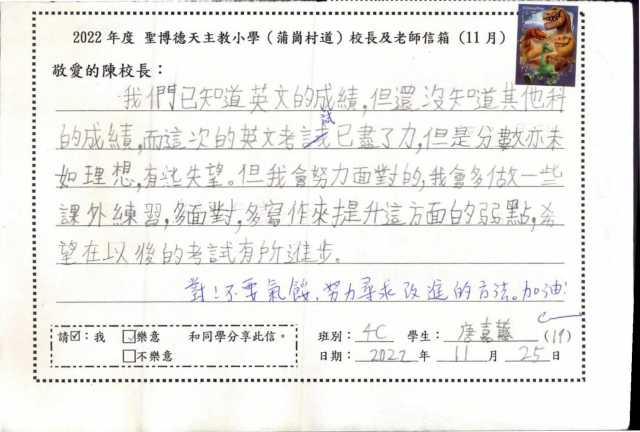 2022 年度 聖博德天主教小學（蒲崗村道）校長及老師信箱（11月）
敬愛的陳校長：
我們已知道英文的成績，但還沒知道其他科
的成績，而這次的英文考試已盡了力，但是分數亦未
如理想，有些失望。但我會努力面對的，我會多做一些
課外練習，多面對，多寫作來提升這方面的弱點，希
望在以後的考試有所進步。
對！不要氣餒，努力尋求改進的方法。加油！
請☑：我 ☑樂意 和同學分享此信。 班別：4C 學生：唐嘉 (19)
□不樂意 日期：2022 年 11 月 25 日